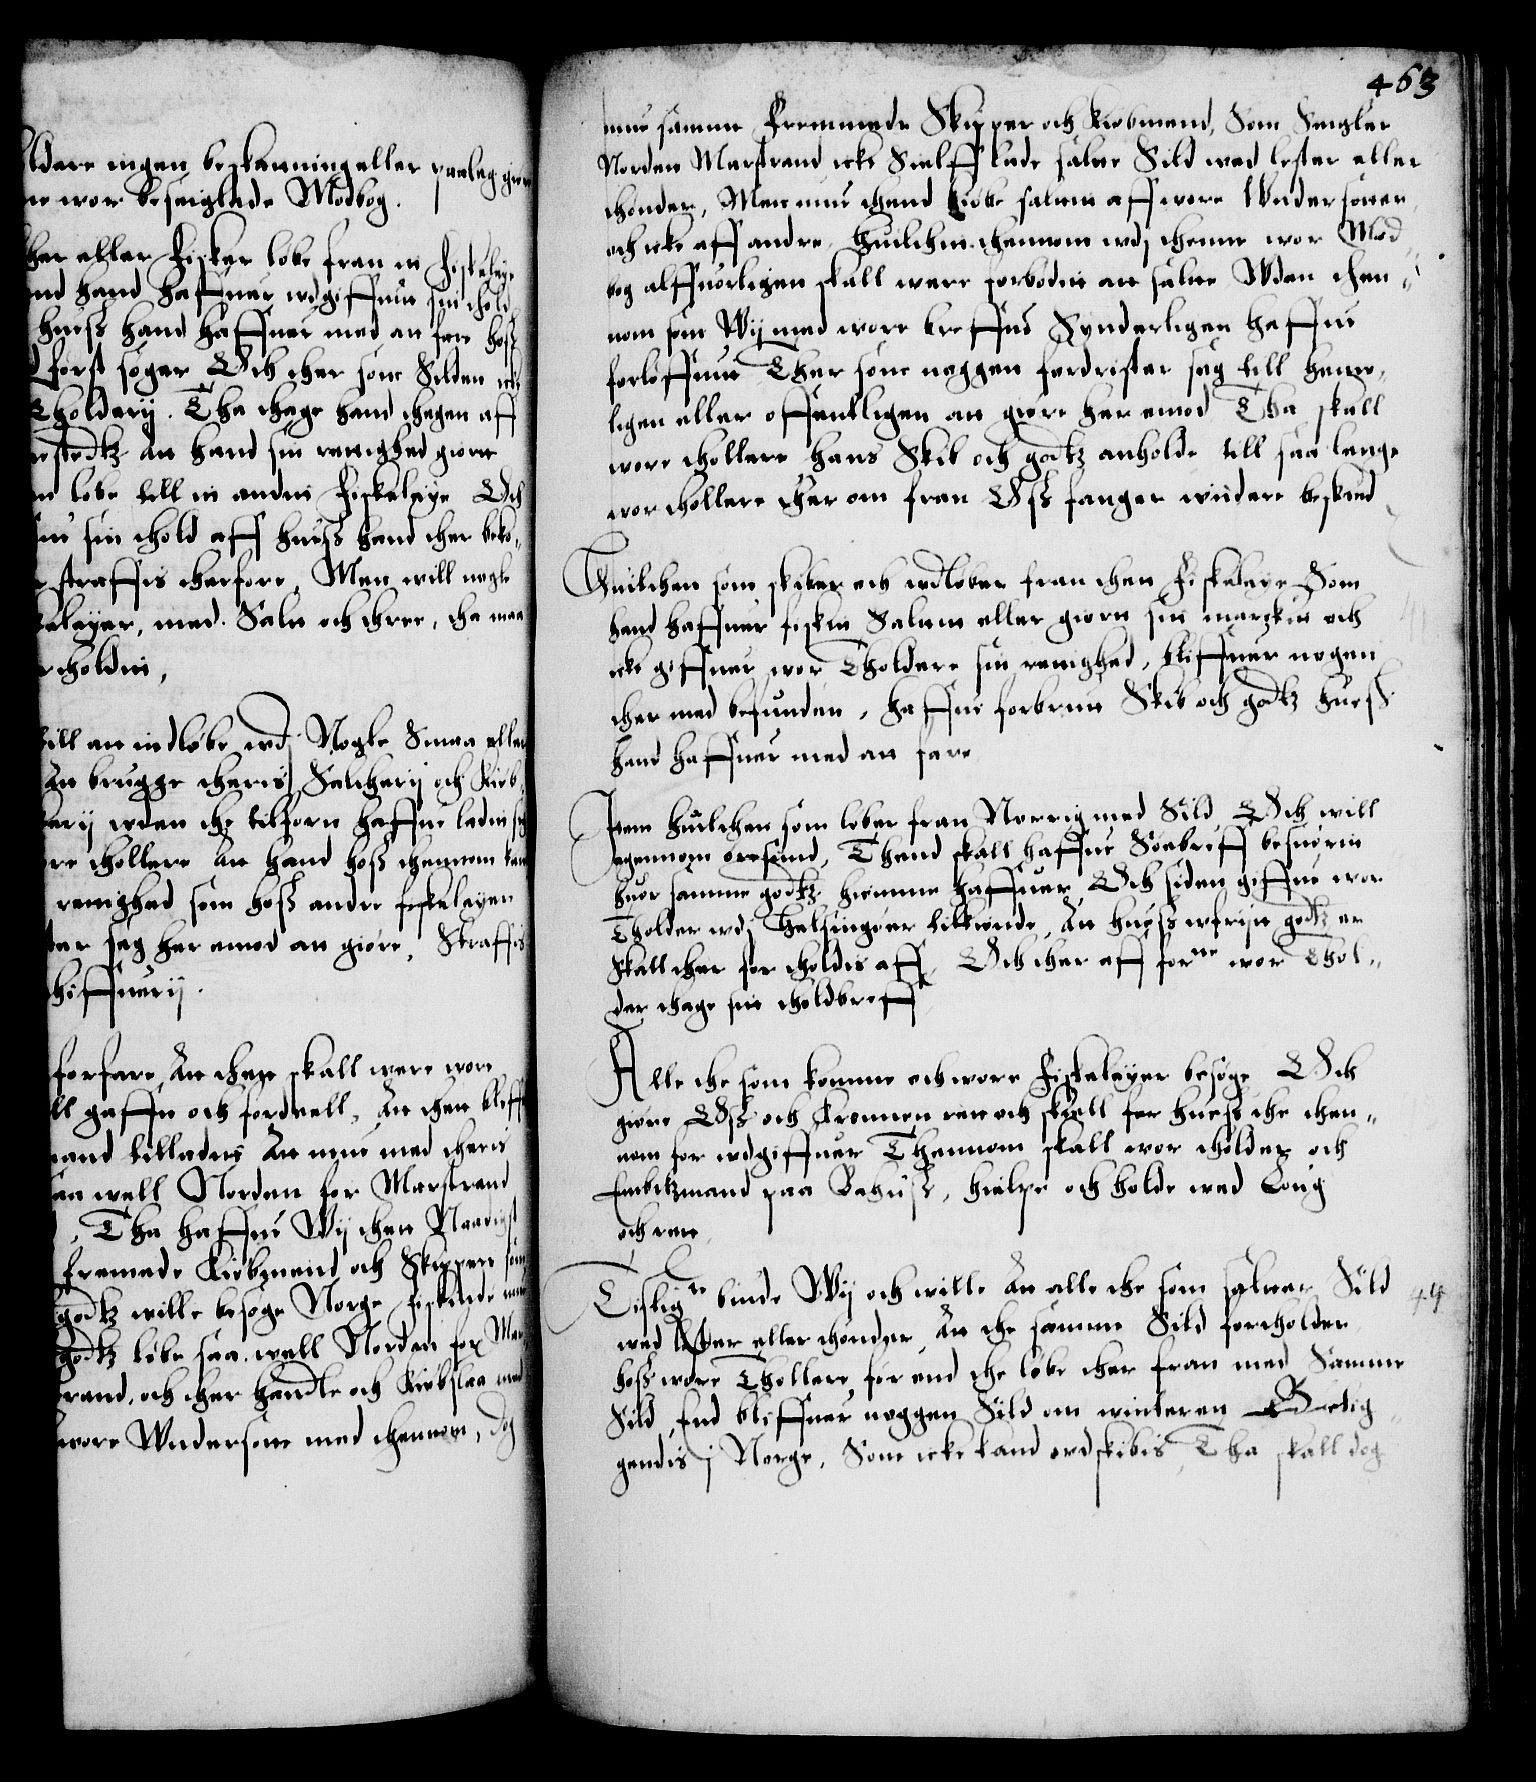 ldere ingen beskatning eller paaleg giøre
wor beseiglede Mødbog.
ther eller Fisker løbe fran en Fiskeleye
end hand haffuer wdgiffuen sin thold
huess hand haffuer med at fare hoss
først søger Och ther som Silden icke
tholderij. Tha thage hand thegen aff
stedtz At hand sin rettighed giorre
løbe till en anden Fiskeleye Och
sin thold aff huess hand ther beko-
straffis therfore, Men will nogle
leyer, med. Salt och three, tha maa
tholden,
will at indløbe wdj Nogle Smaa eller
At brugge theris Saltherij och Kiøb-
wden the tilforn haffue ladet sig
tollere At hand hoss thennom kan
rettighed som hoss andre fiskeleyer
ster seg her emod at giøre, Straffis
thiffuerij.
forfare, At then skall were wore
till gaffn och fordeell, At then bliffue
mand tilladet At mue med theris
saa well Norden for Marstrand
, Tha haffue Wij then Naadigst
fremede Kiøbmend och Skippere som
godtz wille besøge Norge fiskende mue
godtz løbe saa well Norden for Mar
strand, och ther handle och Kiøbslaa med
wore Wndersotte med thennom, dog
463
mue samme Fremmede Skipper och Kiøbmend, Som Seigler
Norden Marstrand icke Sielff lade salte Sild wed lester eller
thønder, Men mue thend kiøbe salten aff wore Wndersotter
och icke aff andre, Huilchen thennom wdj thenne wor Mød
bog alffuorligen skall were forboden at salte Wden then-
nom som Wij med wore breffue Synderligen haffue
forløffuit Ther som noggen fordrister seg till hemme-
ligen eller offentligen at giøre her emod Tha skall
wore thollere hans Skib och godtz anholde till saa lenge
wor thollere ther om fran Oss fanger widere besked
Huilchen som skiber och wdløber fran then Fiskeleye Som
hand haffuer fisken Salten eller giort sin marcken och
icke giffuer wor Tholdere sin rettighed, bliffuer nogen
ther med befunden, haffue forbrut Skib och godtz huess
hand haffuer med at fare
Item huilchen som løber fran Norrig med Sild Och will
igennom øresund, Thend skall haffue Søebreff besuoren
huor samme godtz hiemme haffuer Och siden giffue wor
Tholder wdj Helsingøer tilkiende, At huess wfrijt godtz er
skall ther for tholdis aff, Och ther aff forne wor Thol-
der thage sin tholdbreff
Alle the som komme och wore Fiskeleyer besøge Och
giøre Oss och Cronnen rett och skiell for huess the then-
nom for wdgiffuer Thennom skall wor tholder och
Embitzmand paa Bahuss, hielpe och holde wed Loug
och rett
Tisligte binde Wij och wille At alle the som salter Sild
wed lester eller thønder, At the samme Sild fortholder
hoss wore Thollere, før end the løbe ther fran med Samme
Sild End bliffuer noggen Sild om winteren Be-
gendis j Norge, Som icke kand wdskibis, Tha skall dog